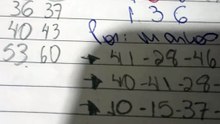 36 37
1.36
40 43
53 60
→ 41-28-46
→ 40-41-28-
→ 10-15-37-